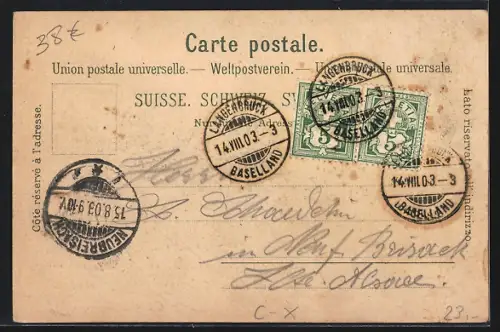 38€
Carte postale.
Union postale universelle. — Weltpostverein. — Unione postale universale
SUISSE. SCHWEIZ. SV
Nu Adres
Côte réservé à l'adresse.
Lato riservato all'indirizzo.
LANGENBRUCK
14.VIII.03.-3
BASELLAND
LANGENBRUCK
14.VIII.03.-3
BASELLAND
5
5
14.VIII.03.-3
(BASELLAND)
NEUBREISACH
15.8.03.9-10V.
in Neuf Brisack
Alsace
C-X
23,-